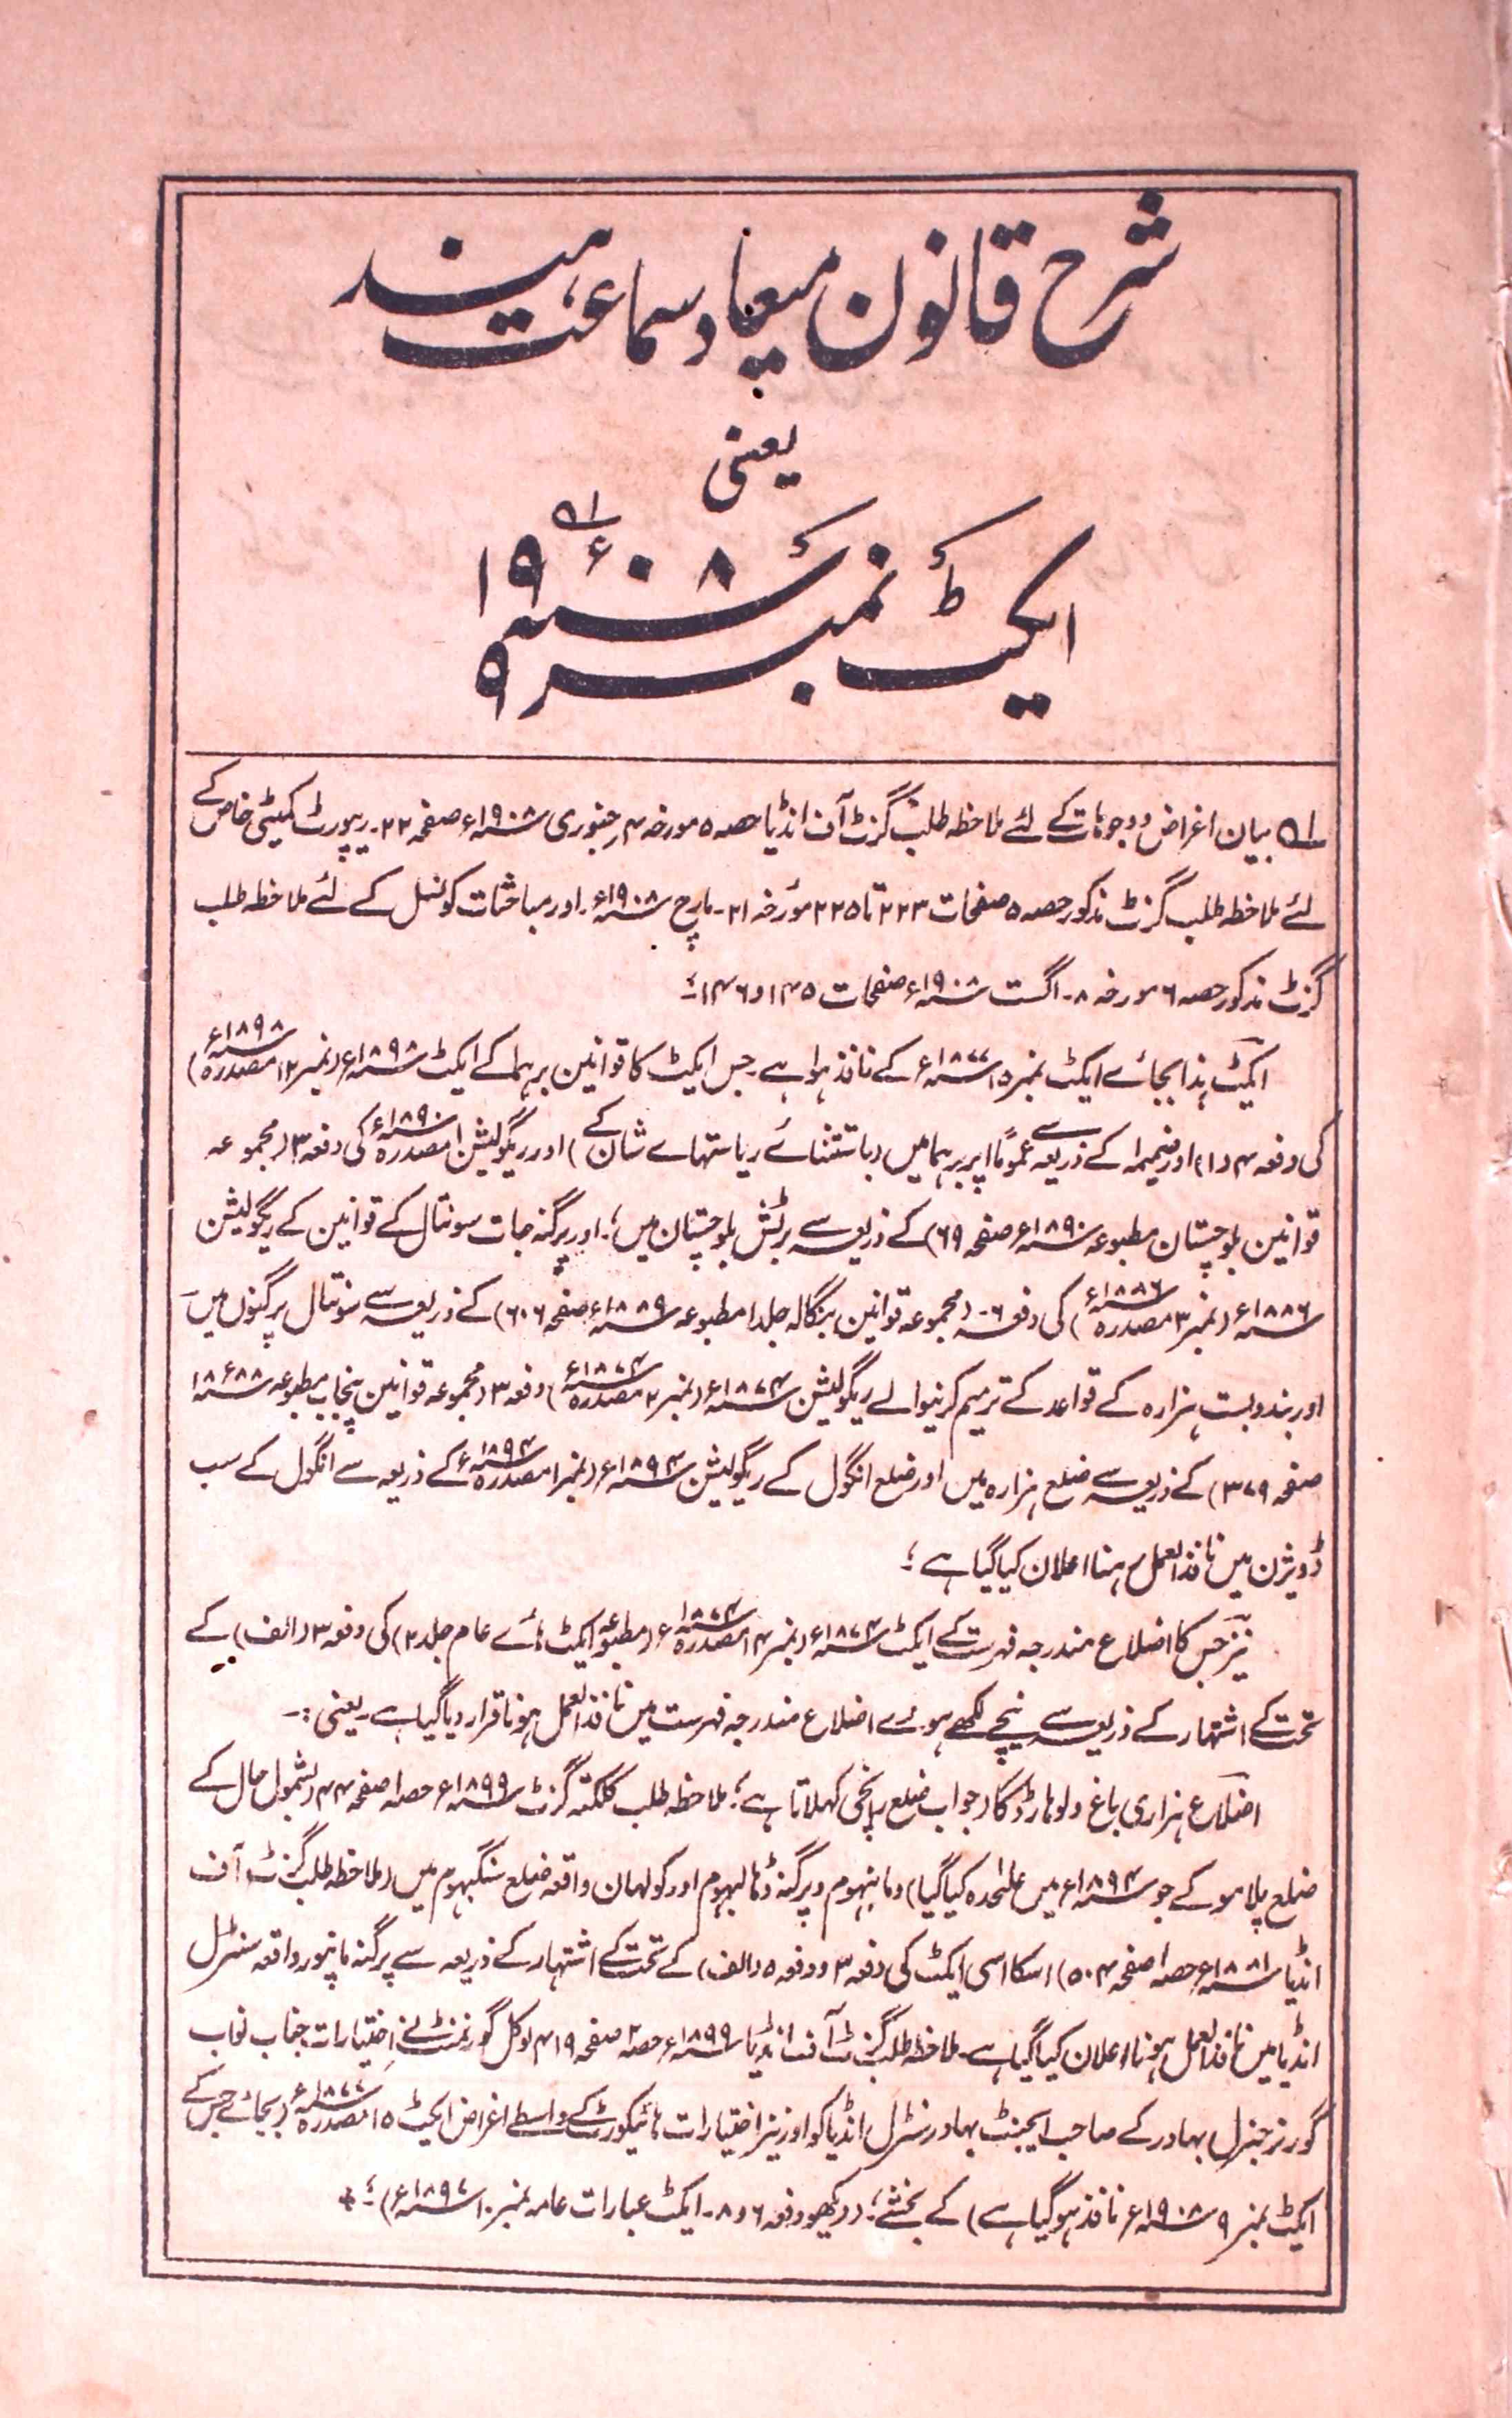 شرح قانون میعاد سماعت ہند
یعنی
ایکٹ نمبر ۹ سنہ ۱۹۰۸ء
بیان اغراض و وجوہات کے لئے ملاحظہ طلب گزٹ آف انڈیا حصہ ۵ مورخہ ۴ جنوری سنہ ۱۹۰۸ء صفحہ ۲۲۔ رپورٹ کمیٹی خاص کے
لئے ملاحظہ طلب گزٹ مذکور حصہ ۵ صفحات ۲۲۳ تا ۲۲۵ مورخہ ۲۱۔ مارچ سنہ ۱۹۰۸ء۔ اور مباحثات کونسل کے لئے ملاحظہ طلب
گزٹ مذکور حصہ ۶ مورخہ ۸۔ اگست سنہ ۱۹۰۸ء صفحات ۱۴۵ و ۱۴۶۔
ایکٹ ہذا بجائے ایکٹ نمبر ۱۵ سنہ ۱۸۷۷ء کے نافذ ہوا ہے۔ جس ایکٹ کا قوانین برہما کے ایکٹ سنہ ۱۸۹۸ء (نمبر ۱۳ مصدرہ سنہ ۱۸۹۸ء)
کی دفعہ ۴ (۱) اور ضمیمہ ۱ کے ذریعہ سے عموماً اپر برہما میں (باستثنائے ریاستہاے شان کے) اور ریگولیشن ۱ مصدرہ سنہ ۱۸۹۰ء کی دفعہ ۳ (مجموعہ
قوانین بلوچستان مطبوعہ سنہ ۱۸۹۰ء صفحہ ۶۹) کے ذریعہ سے برٹش بلوچستان میں؛ اور پرگنہ جات سونتال کے قوانین کے ریگولیشن
سنہ ۱۸۸۶ء (نمبر ۳ مصدرہ سنہ ۱۸۸۶ء) کی دفعہ ۶۔ (مجموعہ قوانین بنگالہ جلد ۱ مطبوعہ سنہ ۱۸۸۹ء صفحہ ۶۰۶) کے ذریعہ سے سونتال پرگنوں میں
اور بندوبست ہزارہ کے قواعد کے ترمیم کرنیوالے ریگولیشن سنہ ۱۸۷۴ء (نمبر ۲ مصدرہ سنہ ۱۸۷۴ء) دفعہ ۳ (مجموعہ قوانین پنجاب مطبوعہ سنہ ۱۸۸۸ء
صفحہ ۳۷۹) کے ذریعہ سے ضلع ہزارہ میں اور ضلع انگول کے ریگولیشن سنہ ۱۸۹۴ء (نمبر ۱ مصدرہ سنہ ۱۸۹۴ء) کے ذریعہ سے انگول کے سب
ڈویژن میں نافذ العمل رہنا اعلان کیا گیا ہے؛
نیز جس کا اضلاع مندرجہ فہرست کے ایکٹ سنہ ۱۸۷۴ء (نمبر ۱۴ مصدرہ سنہ ۱۸۷۴ء) (مطبوعہ ایکٹ ہائے عام جلد ۲) کی دفعہ ۳ (الف) کے
تحت کے اشتہار کے ذریعہ سے نیچے لکھے ہوئے اضلاع مندرجہ فہرست میں نافذ العمل ہونا قرار دیا گیا ہے۔ یعنی:۔
اضلاع ہزاری باغ و لوہارڈگا (جو اب ضلع رانچی کہلاتا ہے؛ ملاحظہ طلب کلکتہ گزٹ سنہ ۱۸۹۹ء حصہ ۱ صفحہ ۴۴ (بشمول حال کے
ضلع پلامو کے جو سنہ ۱۸۹۴ء میں علٰحدہ کیا گیا) و مانبہوم و پرگنہ ڈھالبہوم اور کولہان واقعہ ضلع سنگبہوم میں (ملاحظہ طلب گزٹ آف
انڈیا سنہ ۱۸۸۱ء حصہ ۱ صفحہ ۵۰۴) اسکا اسی ایکٹ کی دفعہ ۳ و دفعہ ۵ (الف) کے تحت کے اشتہار کے ذریعہ سے پرگنہ مانپور واقعہ سنٹرل
انڈیا میں نافذ العمل ہونا اعلان کیا گیا ہے۔ ملاحظہ طلب گزٹ آف انڈیا سنہ ۱۸۹۹ء حصہ ۲ صفحہ ۴۱۹ لوکل گورنمنٹ نے اختیارات جناب نواب
گورنر جنرل بہادر کے صاحب ایجنٹ بہادر سنٹرل انڈیا کو اور نیز اختیارات ہائیکورٹ کے واسطے اغراض ایکٹ ۱۵ مصدرہ سنہ ۱۸۷۷ء (بجائے جس کے
ایکٹ نمبر ۹ سنہ ۱۹۰۸ء نافذ ہوگیا ہے) کے بخشے؛ (دیکھو دفعہ ۶ و ۸۔ ایکٹ عبارات عامہ نمبر ۱۰ سنہ ۱۸۹۷ء)؛۔